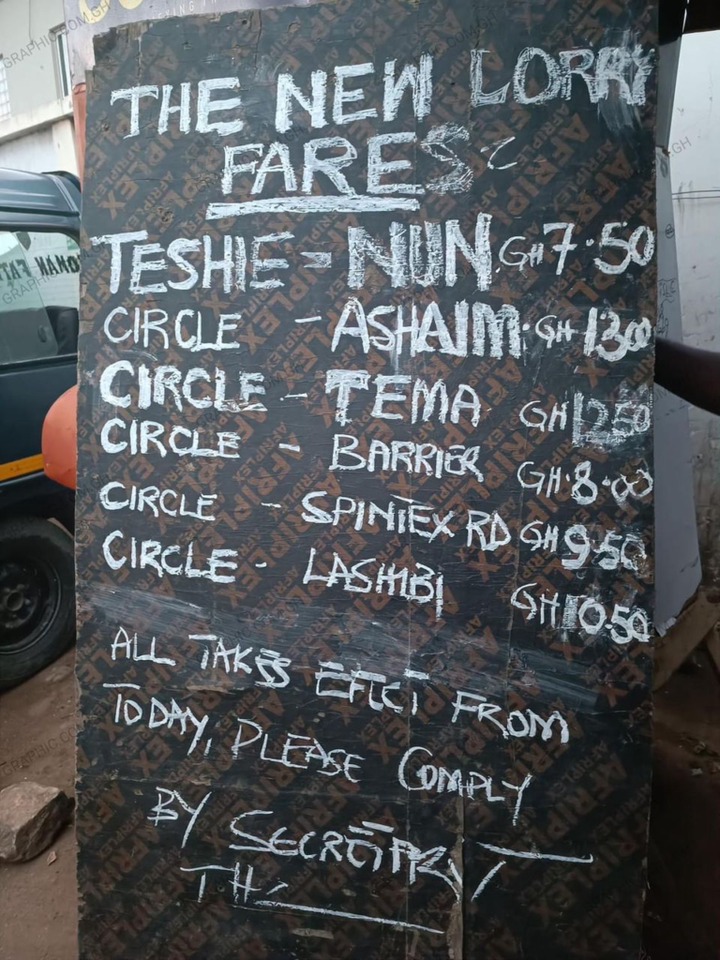 THE NEW LORRY
FARES:
TESHIE - NUN. GH 7.50
CIRCLE - ASHAIM. GH 13.00
CIRCLE - TEMA GH 12.50
CIRCLE - BARRIER GH.8.00
CIRCLE - SPINTEX RD GH 9.50
CIRCLE - LASHIBI GH 10.50
ALL TAKES EFECT FROM
TODAY, PLEASE COMPLY
BY SECRETARY
GRAPHIC.COM.GH
AFRIPLEX